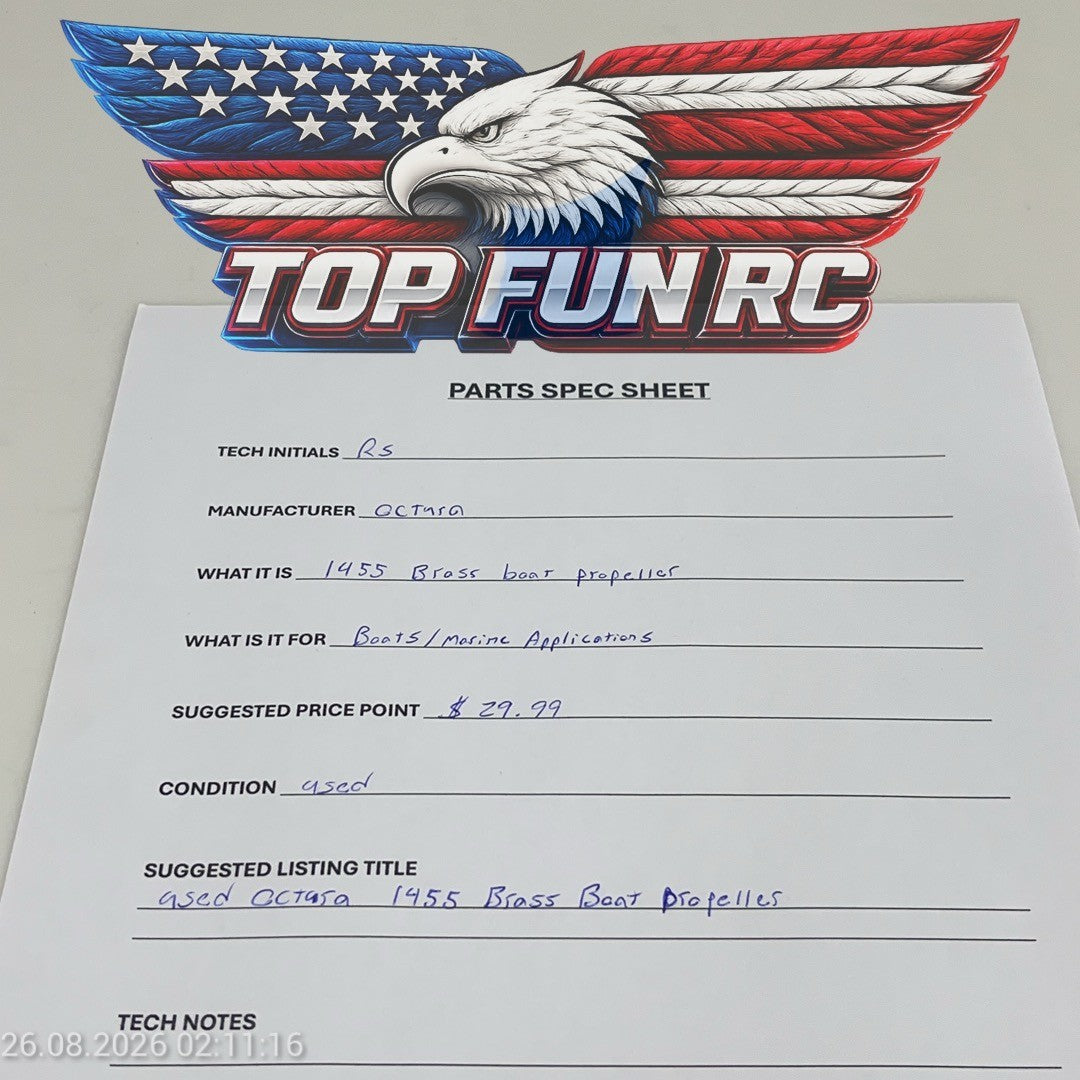 TOP FUN RC
PARTS SPEC SHEET
TECH INITIALS RS
MANUFACTURER OCTURA
WHAT IT IS 1455 Brass boat propeller
WHAT IS IT FOR Boats/Marine Applications
SUGGESTED PRICE POINT $ 29.99
CONDITION used
SUGGESTED LISTING TITLE
used Octura 1455 Brass Boat Propeller
TECH NOTES
26.08.2026 02:11:16